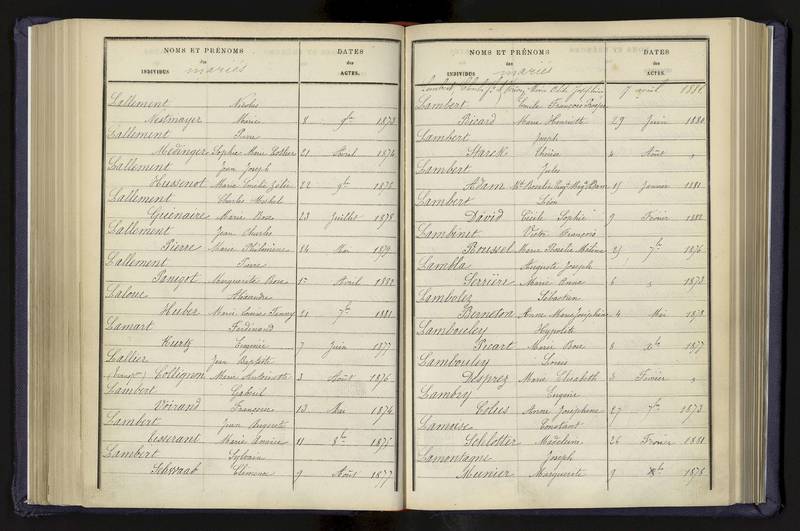 NOMS ET PRÉNOMS DATES
des des
INDIVIDUS mariés ACTES.
Lallement Nicolas
Nestmayer Marie 8 9bre 1873
Lallement Pierre
Medinger Sophie Marie 21 Avril 1874
Lallement Jean Joseph
Hussenot Marie Emélie Zélie 22 9bre
Lallement Charles Michel
Guinaire Marie Rose 23 Juillet 1878
Lallement Jean Charles
Pierre Marie Philomène 14 Mai 1879
Lallement Pierre
Panigot Marguerite Rose 15 Avril 1882
Laloue Alexandre
Huber Marie Louise Fanny 21 7bre 1881
Lamart Ferdinand
Kurtz Eugénie 7 Juin 1877
Lallier Jean Baptiste
Collignon Marie Antoinette 3 Août 1876
Lambert Gabriel
Voirand Françoise 13 Mai 1874
Lambert Jean Auguste
Tisserant Marie 11 8bre 1875
Lambert Sylvain
Schwaab Clémence 9 Août 1877
NOMS ET PRÉNOMS DATES
des des
INDIVIDUS mariés ACTES.
Lambert 7 avril 1886
Lambert Emile François Prosper
Bécard Marie Henriette 29 Juin 1880
Lambert Joseph
Starck Thérèse 4 Août "
Lambert Jules
Adam 15 Janvier 1881
Lambert Léon
David Cécile Sophie 9 Février 1882
Lambinet Victor François
Roussel Marie Rosalie 25 7bre 1876
Lambla Auguste Joseph
Ferrière Marie Anne 6 " 1873
Lambolez Sébastien
Berneton Anne Marie Joséphine 4 Mai 1878
Lambouley Hypolite
Picart Marie Rose 8 Xbre 1877
Lambouley Louis
Desprez Marie Elisabeth 3 Février "
Lambry Eugène
Colus Anne Joséphine 27 7bre 1873
Lamoise Constant
Schlotter Madeleine 26 Février 1881
Lamontagne Joseph
Munier Marguerite 9 Xbre 1878